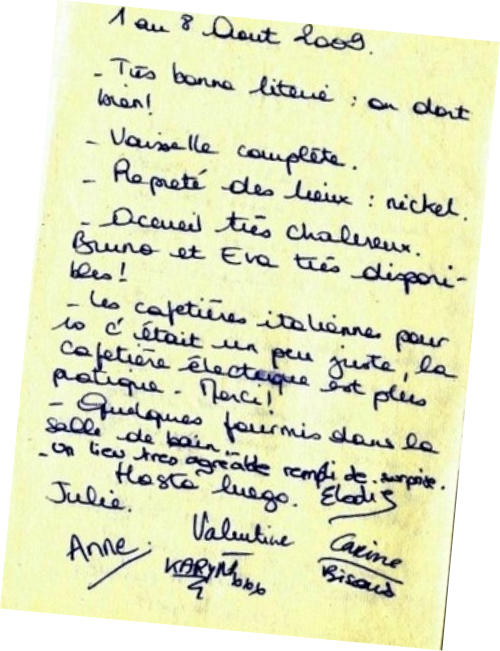 1 au 8 Aout 2009.
- Très bonne literie : on dort
bien!
- Vaisselle complète.
- Propreté des lieux : nickel.
- Accueil très chalereux.
Bruno et Eva très disponi-
bles!
- Les cafetières italiennes pour
10 c'était un peu juste, la
cafetière électrique est plus
pratique. Merci!
- Quelques fourmis dans la
salle de bain...
- Un lieu très agréable rempli de surprise.
Hasta luego. Elodie
Julie.
Valentine
Carine
Anne.
KARYM
Bisous